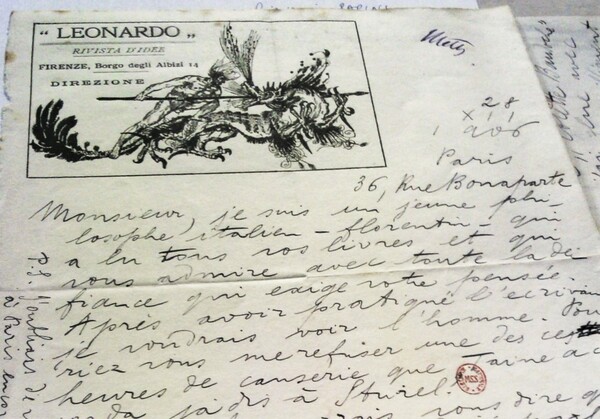 “ LEONARDO „
RIVISTA D'IDEE
FIRENZE, Borgo degli Albizi 14
DIREZIONE
28
XII
1906
Paris
36, Rue Bonaparte
Monsieur, je suis un jeune phi-
losophe italien - florentin - qui
a lu tous vos livres et qui
vous admire avec toute la dé-
fiance qui exige votre pensée.
Après avoir pratiqué l'écrivain
je voudrais voir l'homme. Pour
riez vous me refuser une des ces
heures de causerie que Taine a c
da jadis à Sturel.
vous dire q
P.S. J'oubliais de
à Paris enco
MSS